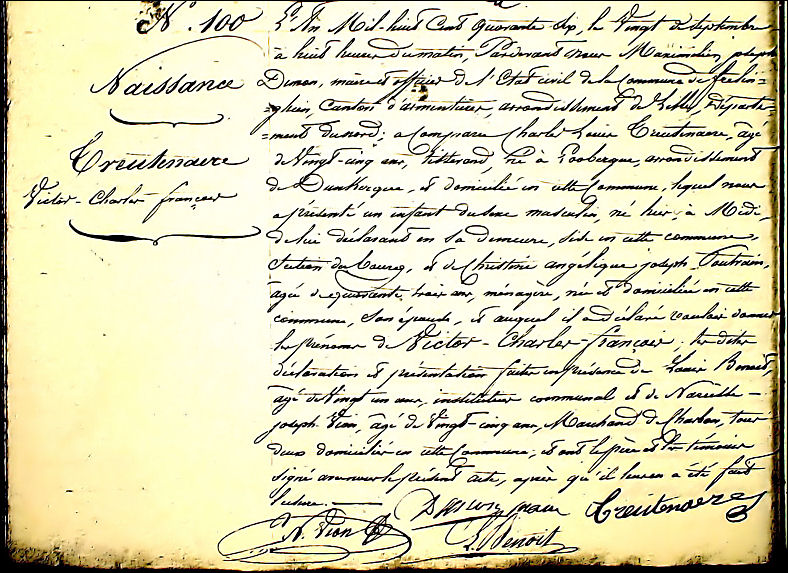 N°. 100
Naissance
Creutenaere
Victor - Charles françois
L'An Mil-huit Cent Quarante Six, le Vingt de Septembre
à huit heures du matin, Pardevant nous Maximilien joseph
Dumon, maire et officier de l'Etat civil de la Commune de frelin=
=ghien, Canton d'armentières, arrondissement de Lille, Départe=
=ment du nord; a Comparu Charles Louis Creutenaere, âgé
de Vingt-cinq ans, tisserand, né à Looberque, arrondissement
de Dunkerque, et domicilié en cette Commune, lequel nous
a présenté un enfant du sexe masculin, né hier, à Midi,
de lui déclarant en sa demeure, sise en cette commune,
Section du bourg, et de Christine angélique joseph Poutrain,
âgée de quarante trois ans, ménagère, née et domiciliée en cette
commune, son épouse, et auquel il a déclaré vouloir donner
les prénoms de Victor - Charles-françois; les dites
déclaration et présentation faites en présence de Louis Benoit,
âgé de Vingt un ans, instituteur communal et de Narcisse -
joseph Vion, âgé de Vingt-cinq ans, Marchand de Charbon, tous
deux domiciliés en cette Commune; et ont le père et les témoins
signé avec nous le présent acte, après qu'il leur en a été fait
lecture.
Creutenaere
N. Vion
L Benoit